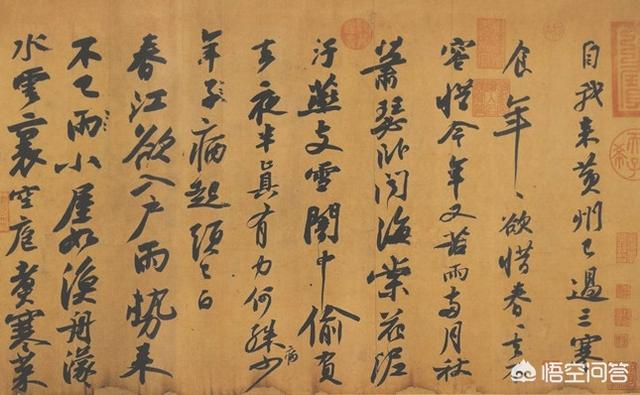 自我来黄州已過三寒
食年〻欲惜春〻去不
容惜今年又苦雨兩月秋
蕭瑟卧聞海棠花泥
汙燕支雪闇中偷負
去夜半真有力何殊少
病
年子病起頭已白
春江欲入户雨勢来
不已雨小屋如漁舟濛〻
水雲裏空庖煮寒菜
悟空问答